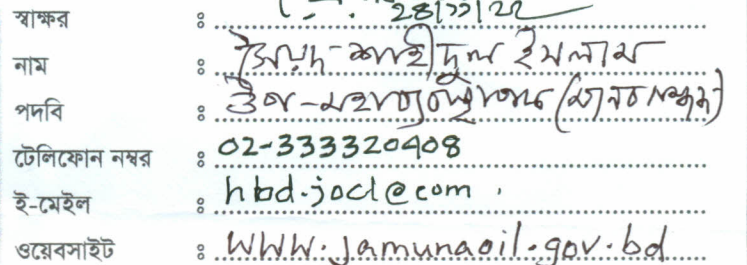 স্বাক্ষর :
নাম : সৈয়দ শাহীদুল ইসলাম
পদবি : উপ-মহাব্যবস্থাপক (মানব সম্পদ)
টেলিফোন নম্বর : 02-333320408
ই-মেইল : hbd.jocl@com
ওয়েবসাইট : www.jamunaoil.gov.bd